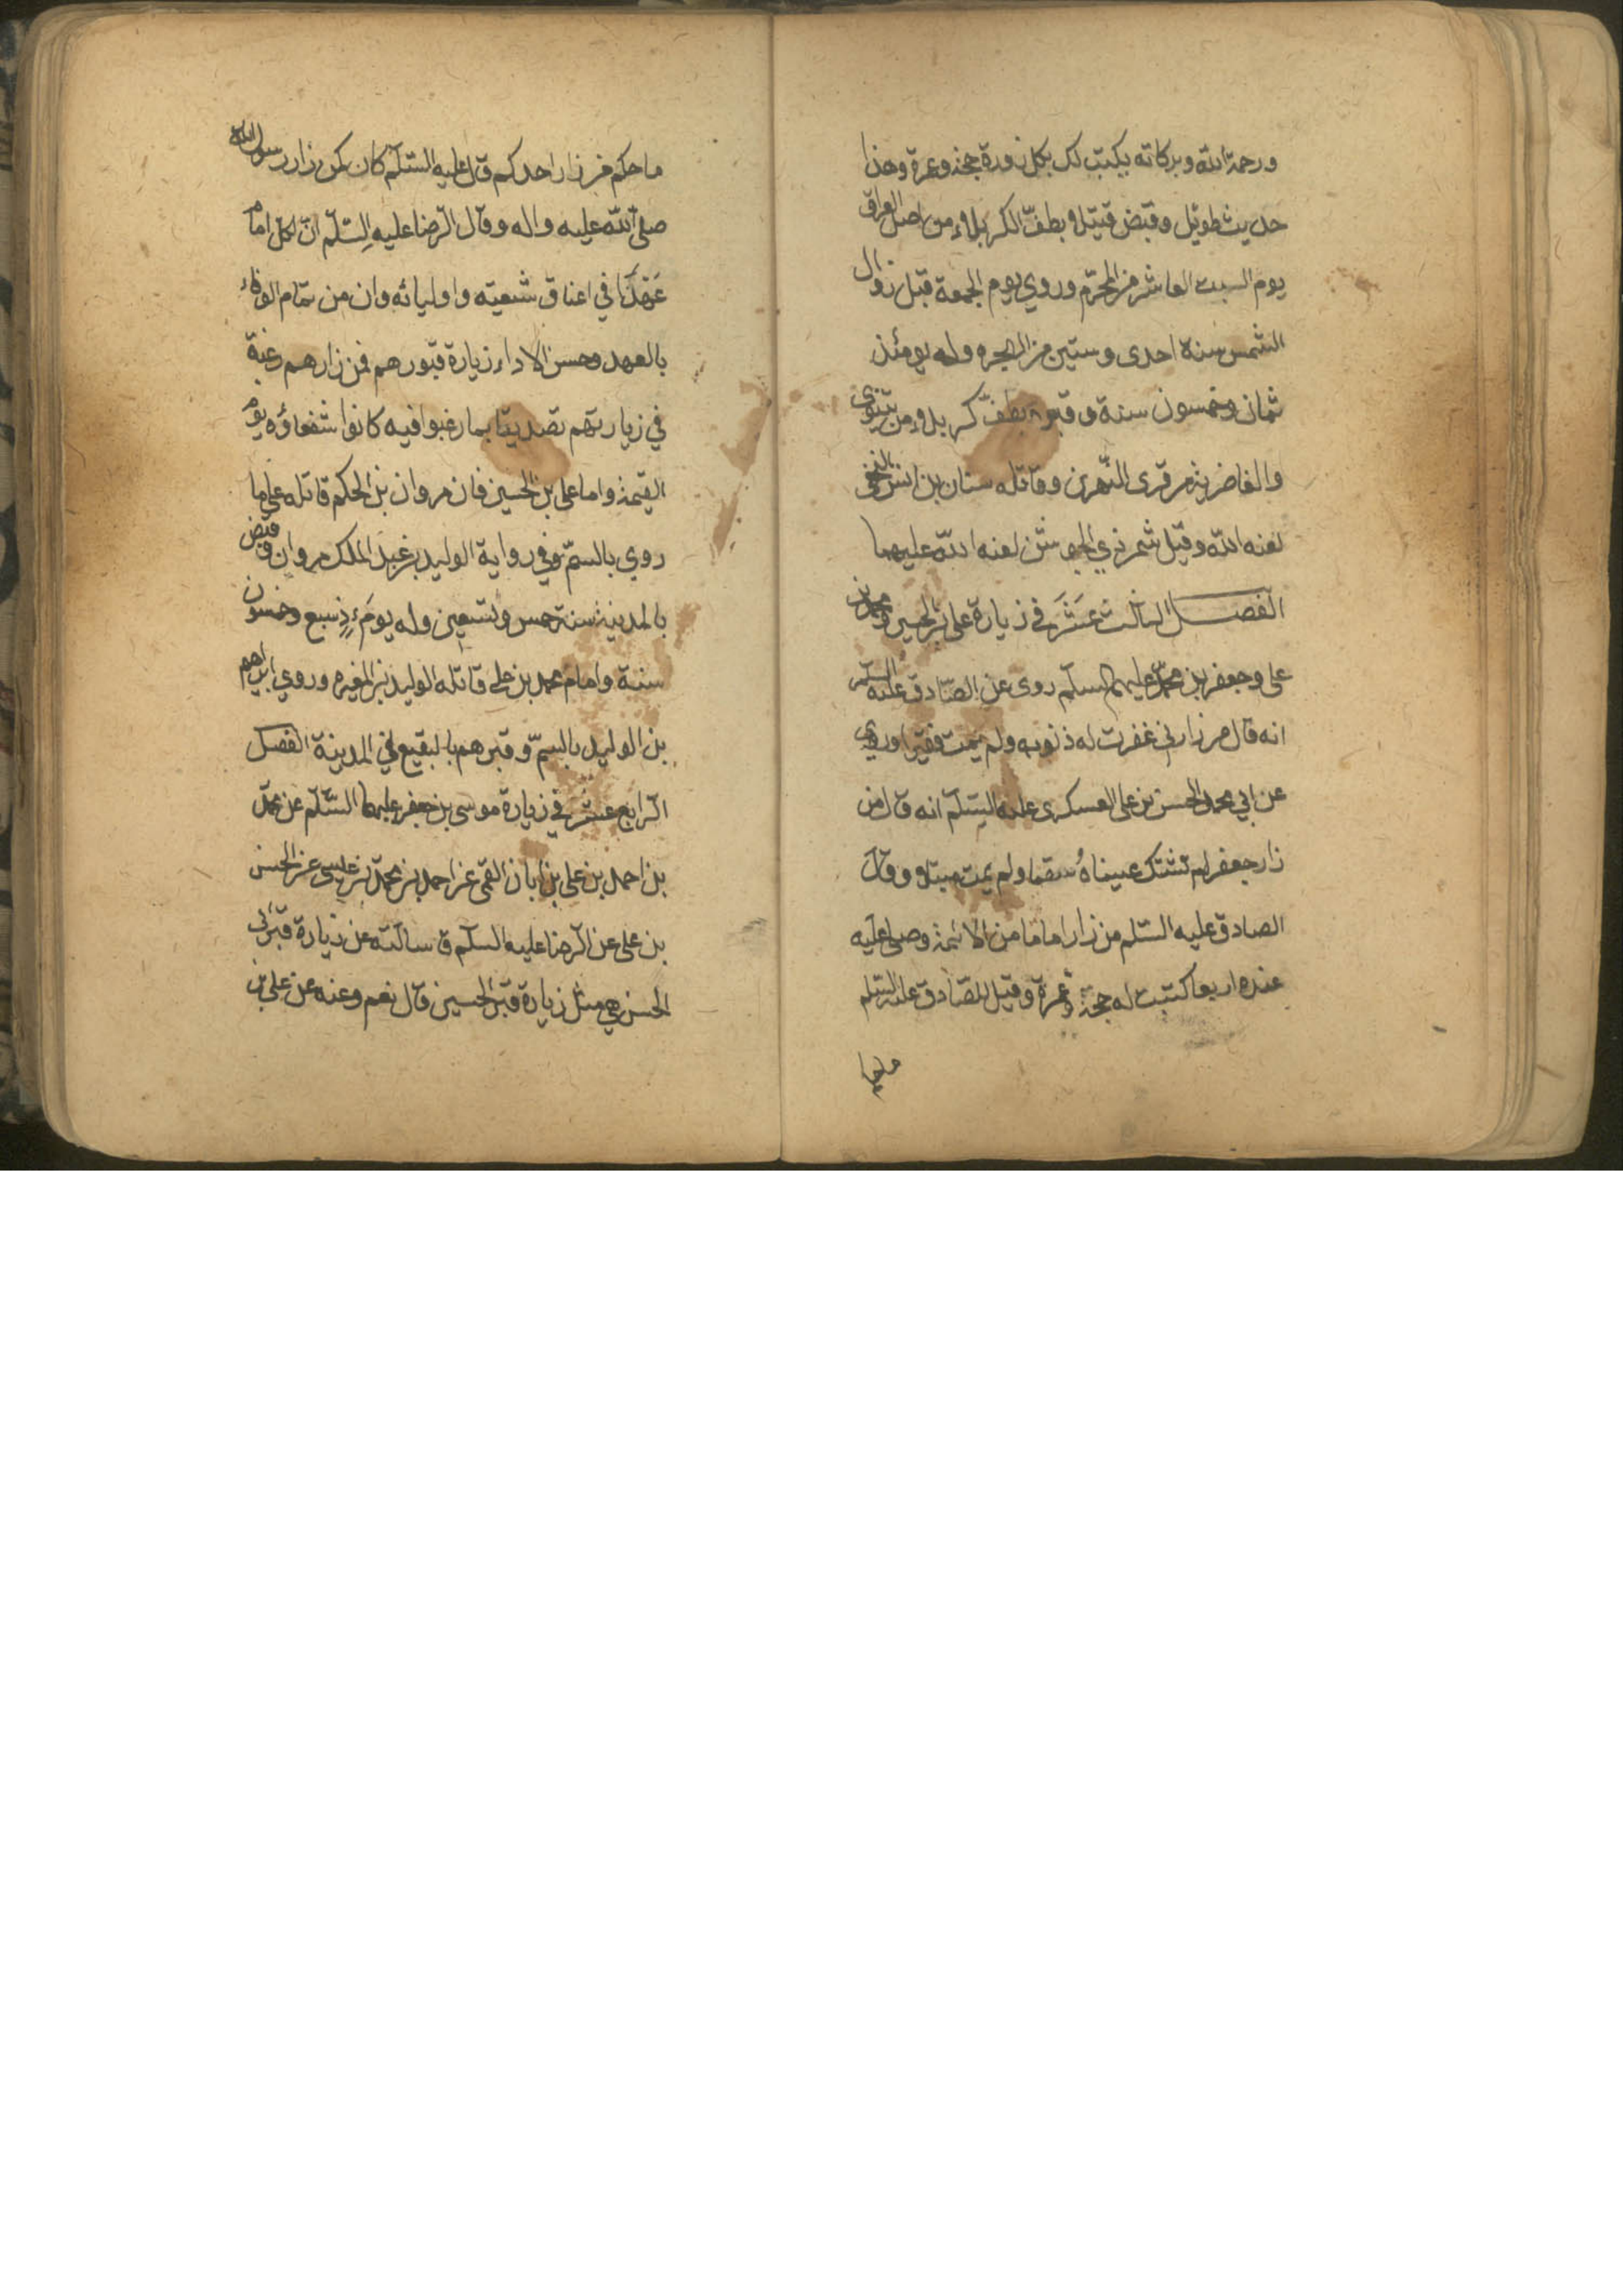 ورحمة الله وبركاته يكتب لك بكل زورة حجة وعمرة وهذا
حديث طويل وقبض قتيلا بطفّ الكربلاء من اصل العراق
يوم السبت العاشر من المحرّم وروي يوم الجمعة قبل زوال
الشمس سنة احدى وستين من الهجره وله يومئذ
ثمان وخمسون سنة وقبره بطفّ كربلاء من نينوى
والغاضرية من قرى النّهرين وقاتله سنان بن انس النخعى
لعنه الله وقيل شمر ذي الجوشن لعنه الله عليهما
الفصل الثالث عَشَرَ في زيارة على بن الحسين ومحمد بن
على وجعفر بن محمّد عليهم السلم روى عن الصّادق عليه السلم
انه قال من زارني غفرت له ذنوبه ولم يمت فقيرا وروي
عن ابي محمد الحسن بن على العسكرى عليه السّلم انه قال من
زار جعفرا لم تشتك عيناهُ سقما ولم يمت مبتلا وقال
الصادق عليه السّلم من زار اماما من الائمة وصلى عليه
عنده اربعا كتبت له حجّة وعمرة وقيل للصّادق عليه السّلم
ما حكم من زار احدكم قال عليه السّلم كان كمن زار رسول الله
صلى الله عليه واله وقال الرّضا عليه السّلم انّ لكل امام
عَهْدًا في اعناق شيعته واوليائه وان من تمام الوفاء
بالعهد وحسن الاداء زيارة قبورهم فمن زارهم رغبة
في زيارتهم تصديقا بما رغبوا فيه كانوا شفعاؤه يوم
القيمة واما على بن الحسين فان مروان بن الحكم قاتله على ما
روي بالسمّ وفي رواية الوليد بن عبد الملك مروان وقبض
بالمدينة سنة خمس وتسعين وله يومَئِذٍ سبع وخمسون
سنة وامام محمد بن على قاتله الوليد بن المغيره وروي ابراهيم
بن الوليد بالسمّ وقبرهم بالبقيع في المدينة الفصل
الرّابع عشر في زيارة موسى بن جعفر عليهما السّلم عن محمّد
بن احمد بن على بن ابان القمى عن احمد بن محمّد بن عيسى عن الحسن
بن على عن الرّضا عليه السلم ق سالته عن زيارة قبر ابى
الحسن هي مثل زيارة قبر الحسين قال نعم وعنه عن على بن